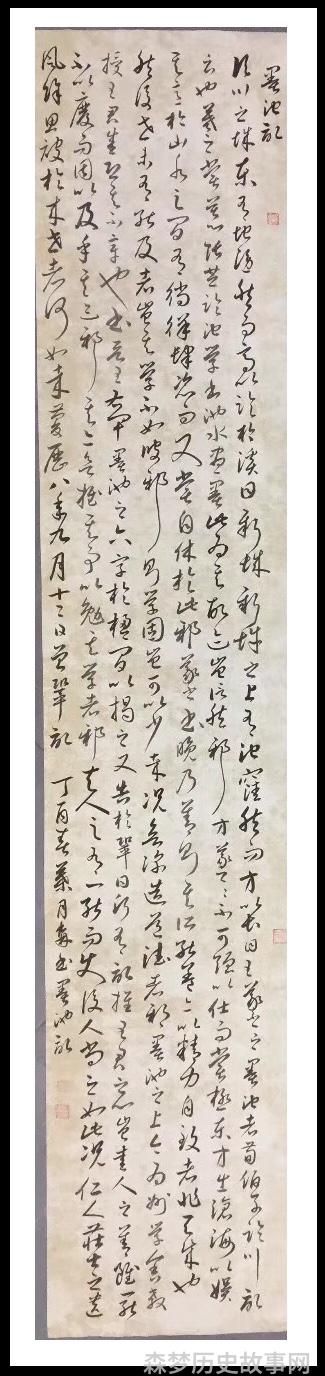 墨池記
臨川之城東有地隱然而高以臨於溪曰新城新城之上有池窪然而方以長曰王羲之之墨池者荀伯子臨川記
云也羲之嘗慕張芝臨池學書池水盡黑此為其故迹豈信然邪方羲之之不可強以仕而嘗極東方出滄海以娛
其意於山水之間有徜徉肆恣而又嘗自休於此邪羲之書晚乃善則其所能蓋亦以精力自致者非天成也
然後世未有能及者豈其學不如彼邪則學固豈可以少哉況欲深造道德者邪墨池之上今為州學舍教
授王君盛恐其不章也書晉王右軍墨池之六字於楹間以揭之又告於鞏曰願有記推王君之心豈愛人之善雖一能
不以廢而因以及乎其迹邪其亦欲推其事以勉其學者邪夫人之有一能而使後人尚之如此況仁人莊士之遺
風餘思被於來世者何如哉慶歷八年九月十二日曾鞏記 丁酉春月書墨池記
森梦历史故事网